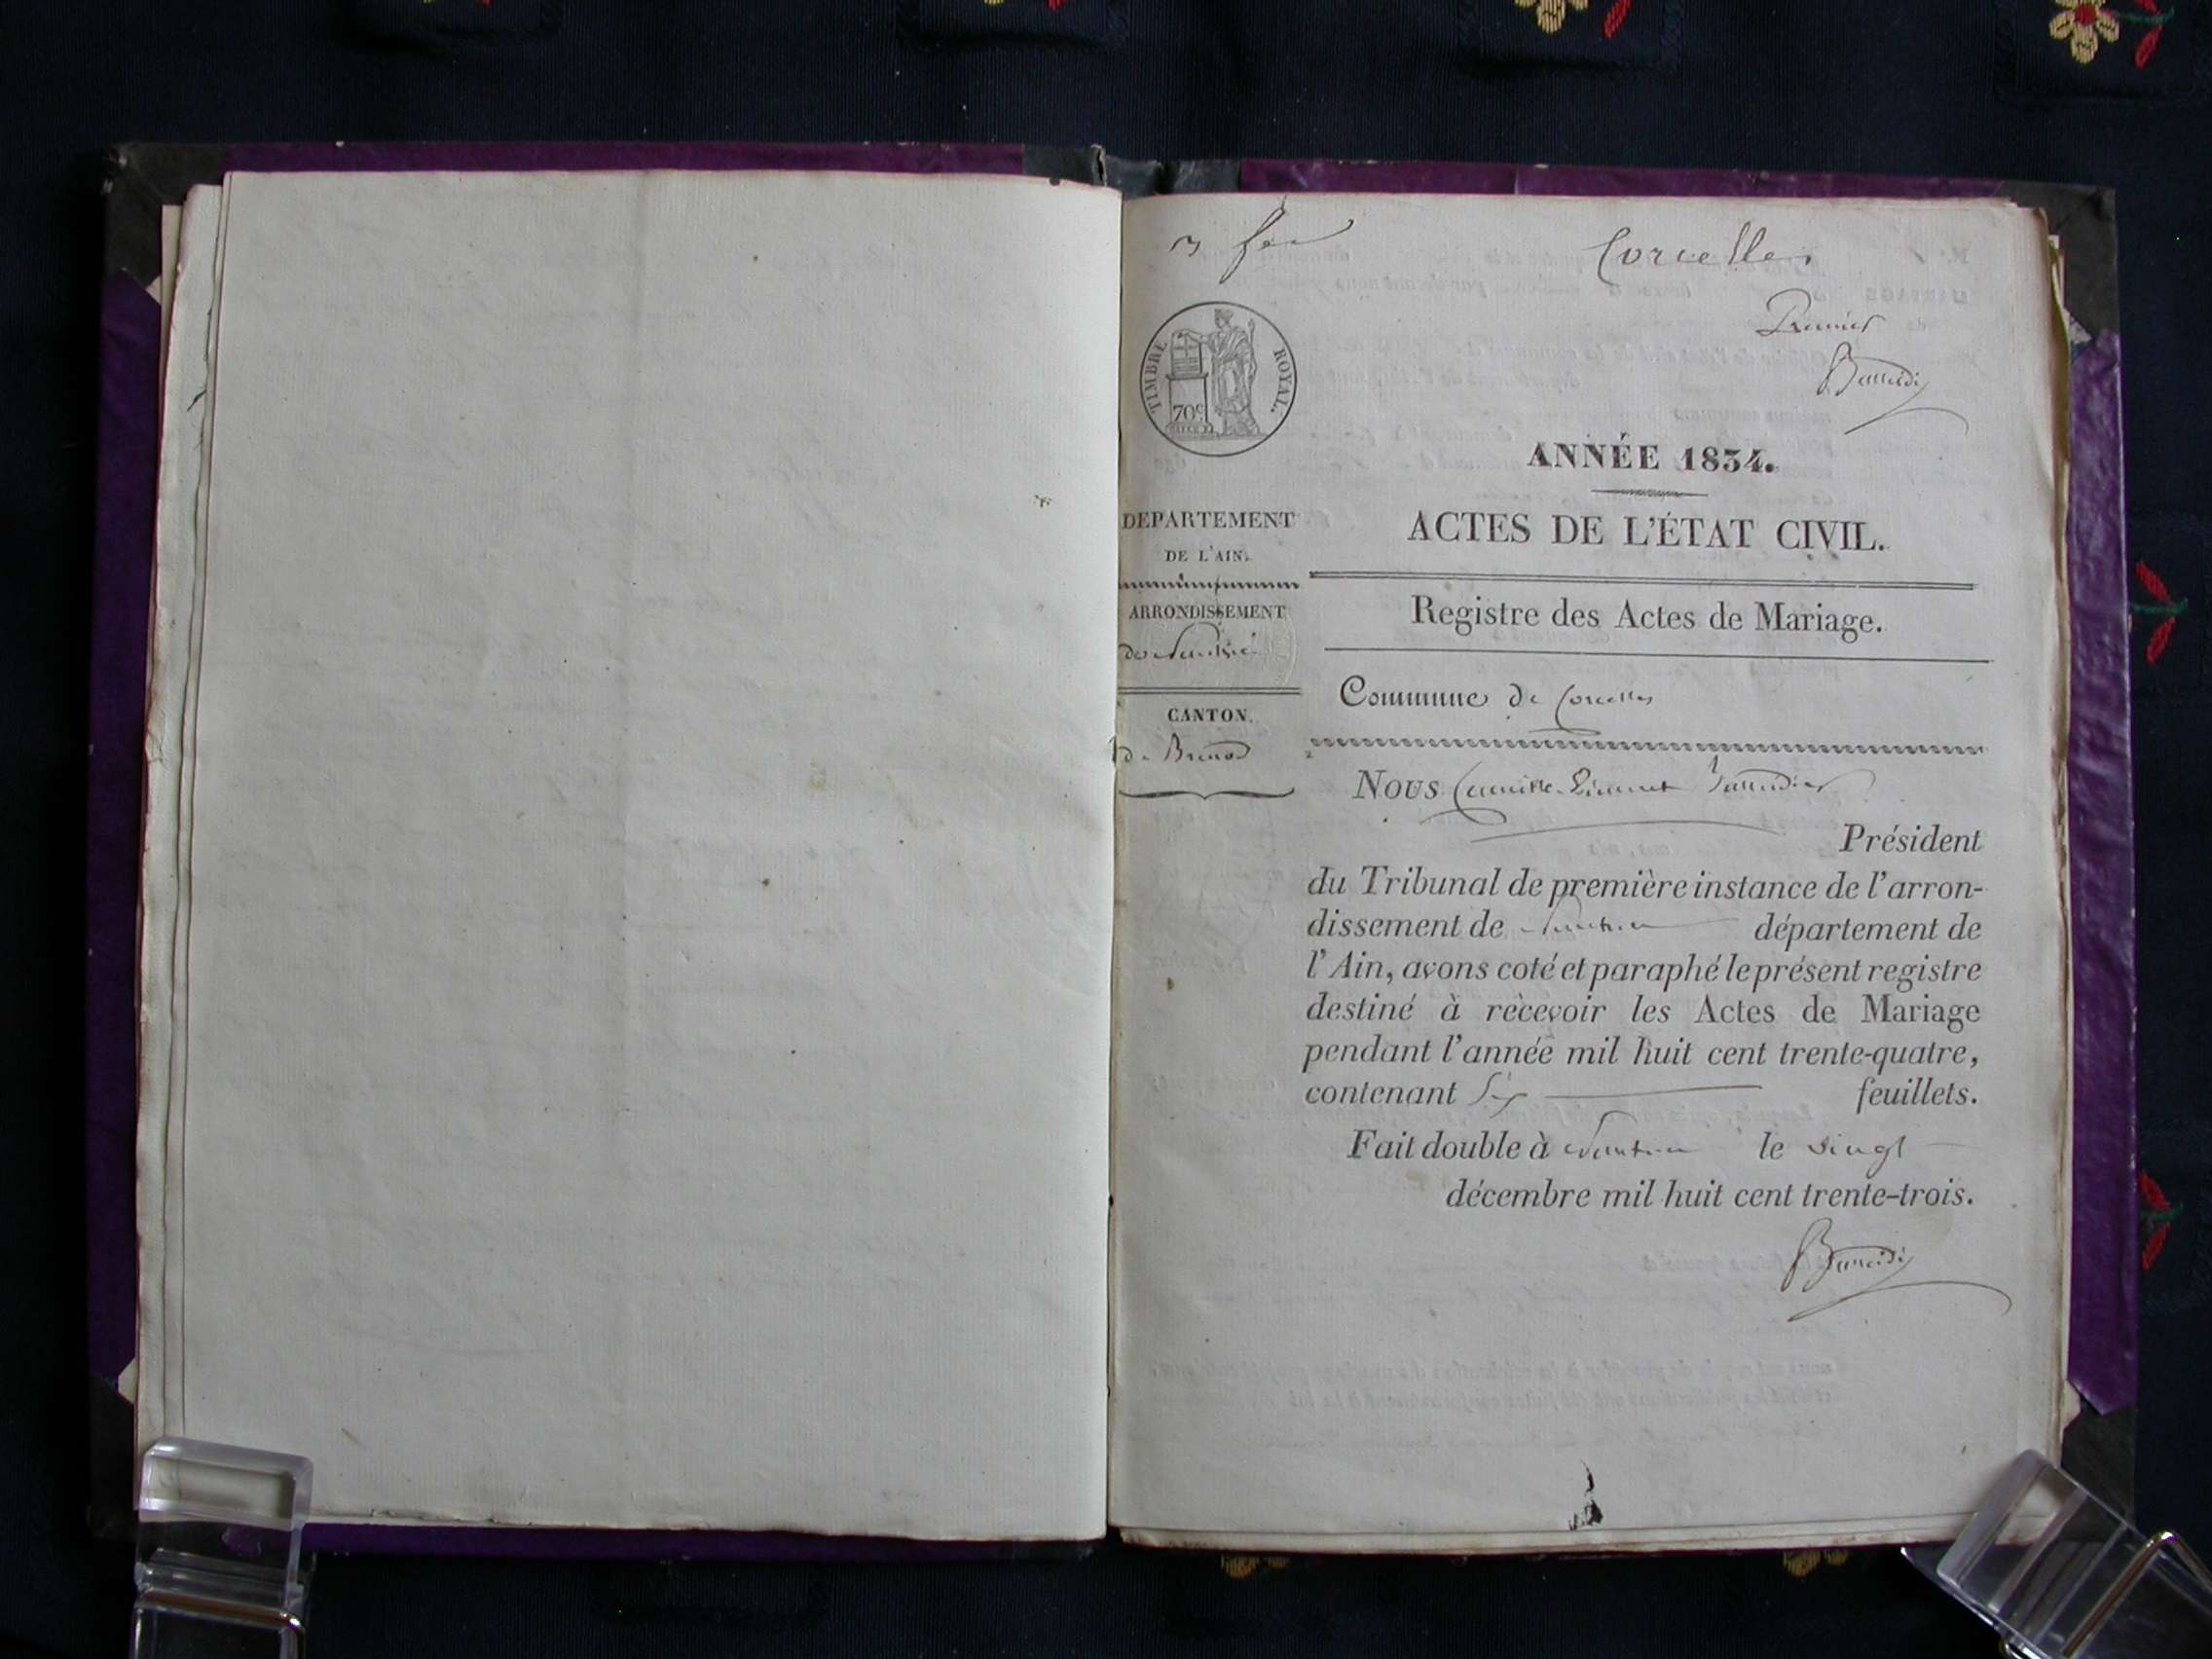 3 feu
Corcelles
Premier
TIMBRE ROYAL.
70c
ANNÉE 1834.
DEPARTEMENT
DE L'AIN.
ACTES DE L'ÉTAT CIVIL.
ARRONDISSEMENT
de Nantua
Registre des Actes de Mariage.
CANTON
de Brenod
Commune de Corcelles
Nous Camille
Président
du Tribunal de première instance de l'arron-
dissement de Nantua département de
l'Ain, avons coté et paraphé le présent registre
destiné à recevoir les Actes de Mariage
pendant l'année mil huit cent trente-quatre,
contenant Six feuillets.
Fait double à Nantua le vingt
décembre mil huit cent trente-trois.